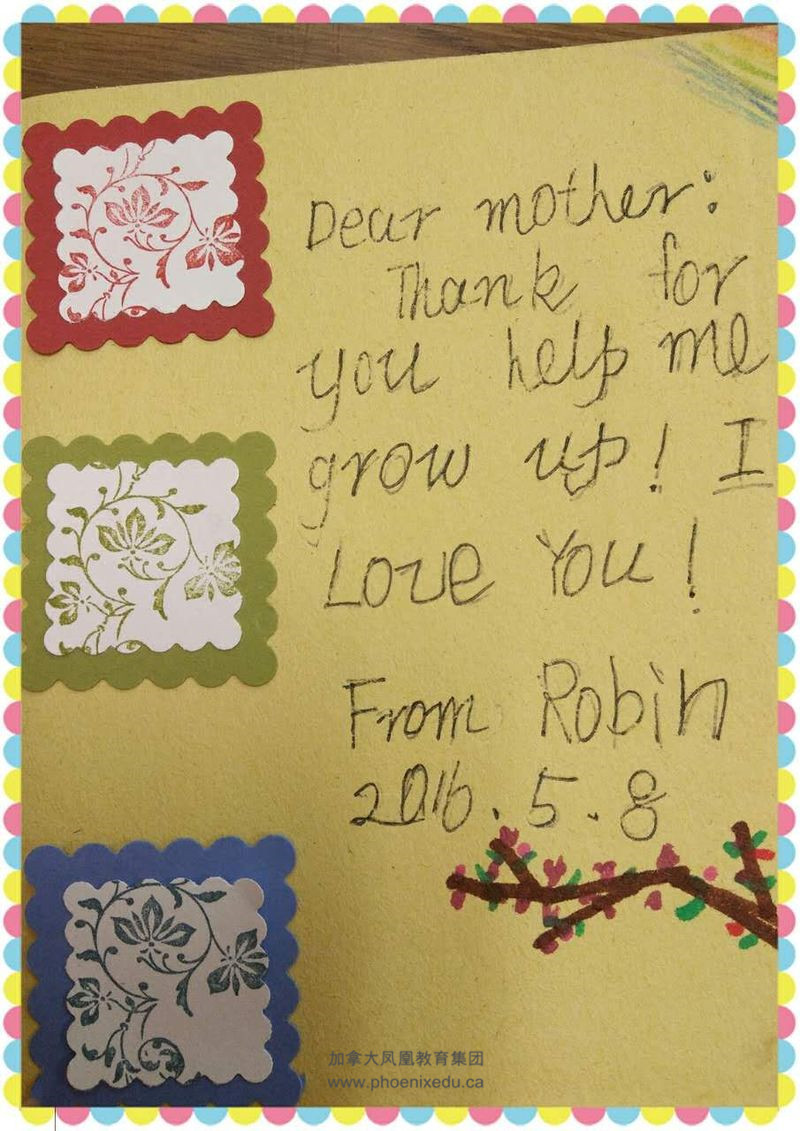 Dear mother:
Thank for
you help me
grow up! I
Love You!
From Robin
2016.5.8
加拿大凤凰教育集团
www.phoenixedu.ca